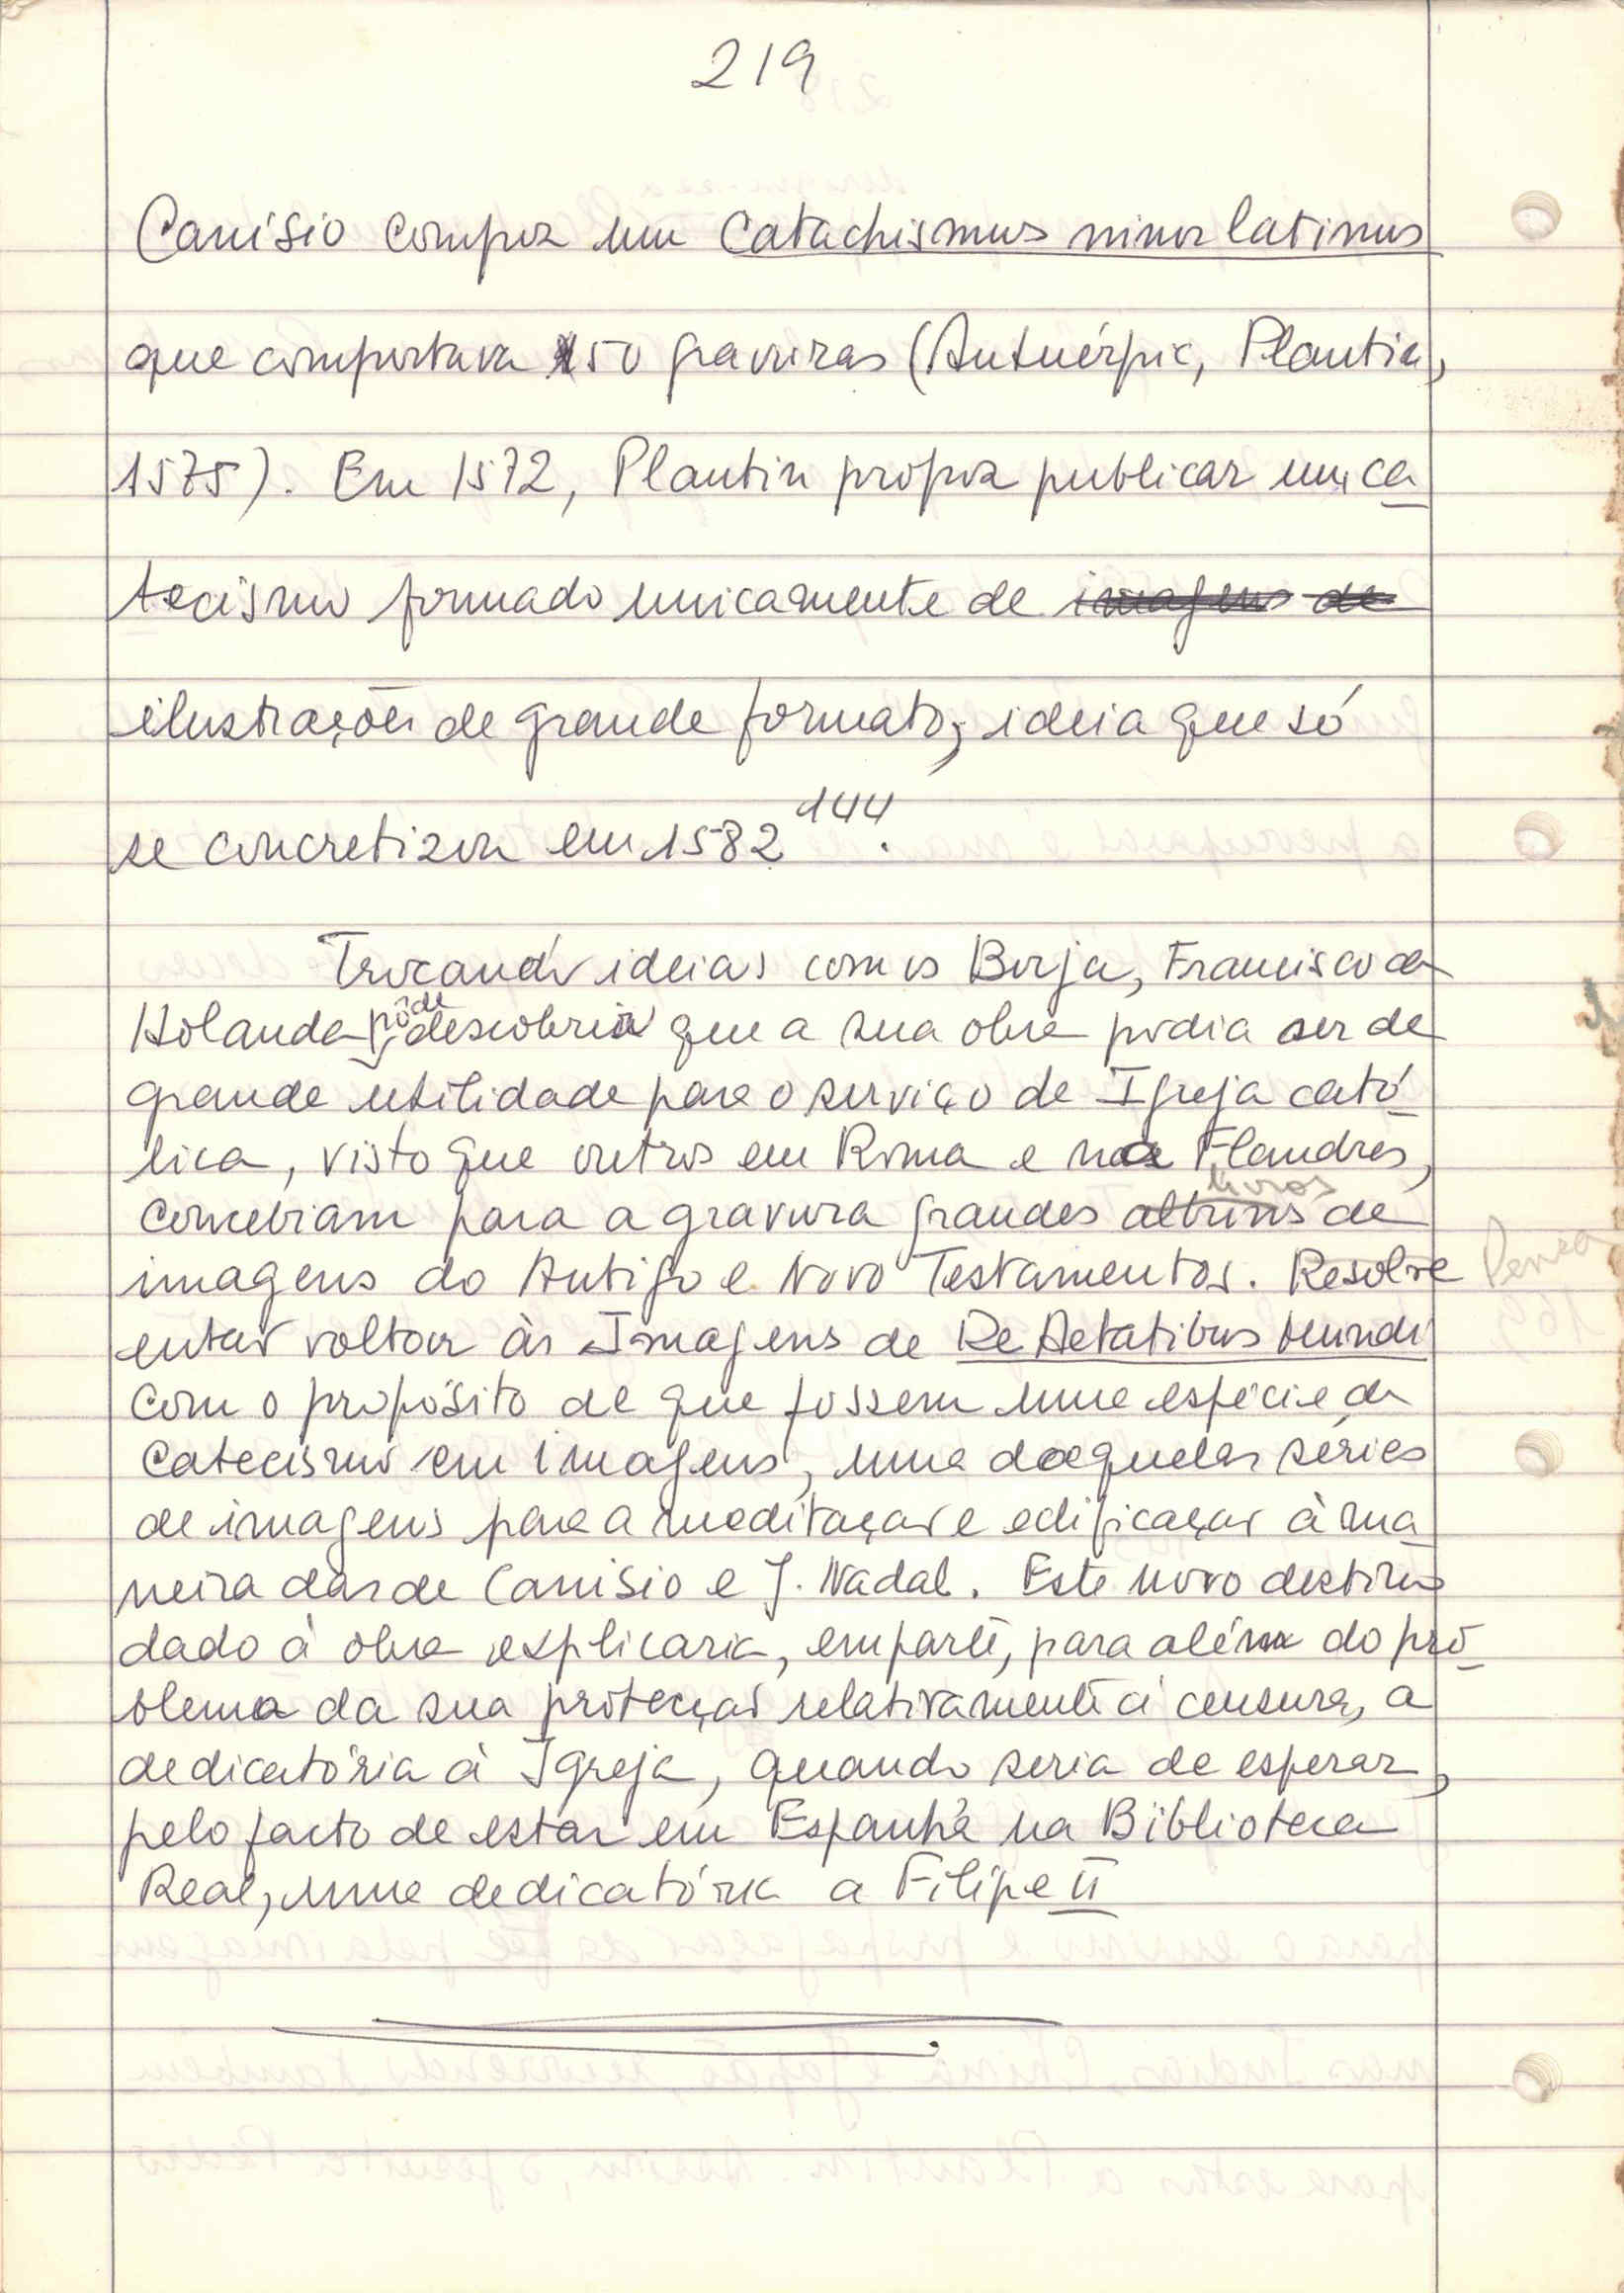 219
Canísio compoz um Catachismus minor latinus
que comportava 50 gravuras (Antuérpia, Plantin,
1575). Em 1572, Plantin propoz publicar um ca
tecismo formado unicamente de imagens de
ilustrações de grande formato, ideia que só
se concretizou em 1582 144.
Trocando ideias com os Borja, Francisco de
Holanda pôde descobrir que a sua obra podia ser de
grande utilidade para o serviço da Igreja cató-
lica, visto que outros em Roma e na Flandres,
concebiam para a gravura grandes albuns livros de
imagens do Antigo e Novo Testamentos. Resolve
então voltar às Imagens de De Aetatibus Mundi
com o propósito de que fossem uma espécie de
catecismo em imagens, uma daquelas séries
de imagens para a meditação e edificação à ma
neira das de Canisio e J. Nadal. Este novo destino
dado à obra explicaria, em parte, para além do pro-
blema da sua protecção relativamente à censura, a
dedicatória à Igreja, quando seria de esperar,
pelo facto de estar em Espanha na Biblioteca
Real, uma dedicatória a Filipe II